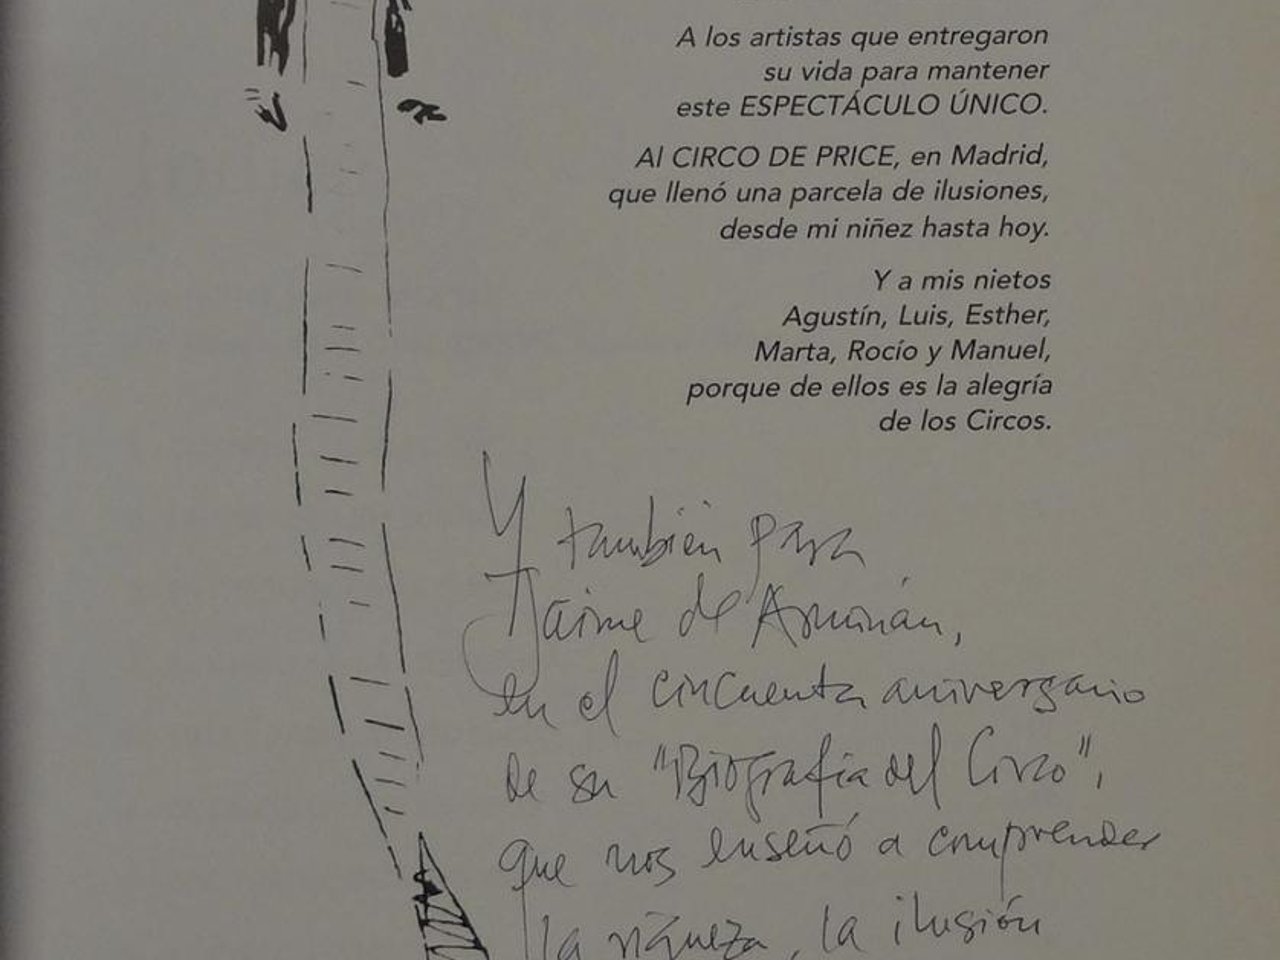 A los artistas que entregaron
su vida para mantener
este ESPECTÁCULO ÚNICO.
Al CIRCO DE PRICE, en Madrid,
que llenó una parcela de ilusiones,
desde mi niñez hasta hoy.
Y a mis nietos
Agustín, Luis, Esther,
Marta, Rocío y Manuel,
porque de ellos es la alegría
de los Circos.
Y también para
Jaime de Armiñán,
en el cincuenta aniversario
de su "Biografía del Circo",
que nos enseñó a comprender
la riqueza, la ilusión